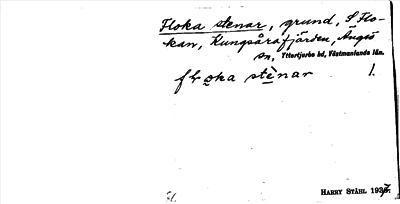 Floka stenar, grund, S Flo-
kan, Kungsårafjärden, Ängsö
sn, Yttertjurbo hd, Västmanlands län.
flọka stẹ̀nar 1.
Fl.
HARRY STÅHL 1937.